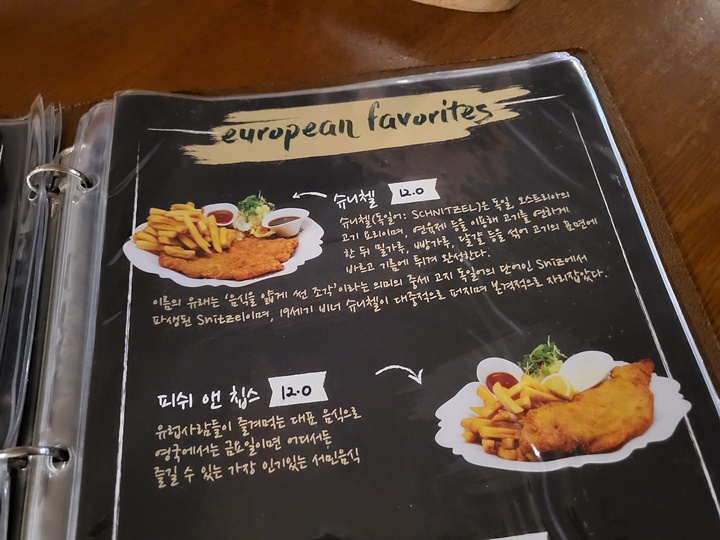 european favorites
슈니첼 12.0
슈니첼(독일어: SCHNITZEL)은 독일, 오스트리아의
고기 요리이며, 연육제 등을 이용해 고기를 연하게
한 뒤 밀가루, 빵가루, 달걀 등을 섞어 고기의 표면에
바르고 기름에 튀겨 완성한다.
이름의 유래는 '음식을 얇게 썬 조각'이라는 의미의 중세 고지 독일어의 단어인 Sniz에서
파생된 Snitzel이며, 19세기 비너 슈니첼이 대중적으로 퍼지며 본격적으로 자리잡았다.
피쉬 앤 칩스 12.0
유럽사람들이 즐겨먹는 대표 음식으로
영국에서는 금요일이면 어디서든
즐길 수 있는 가장 인기있는 서민음식